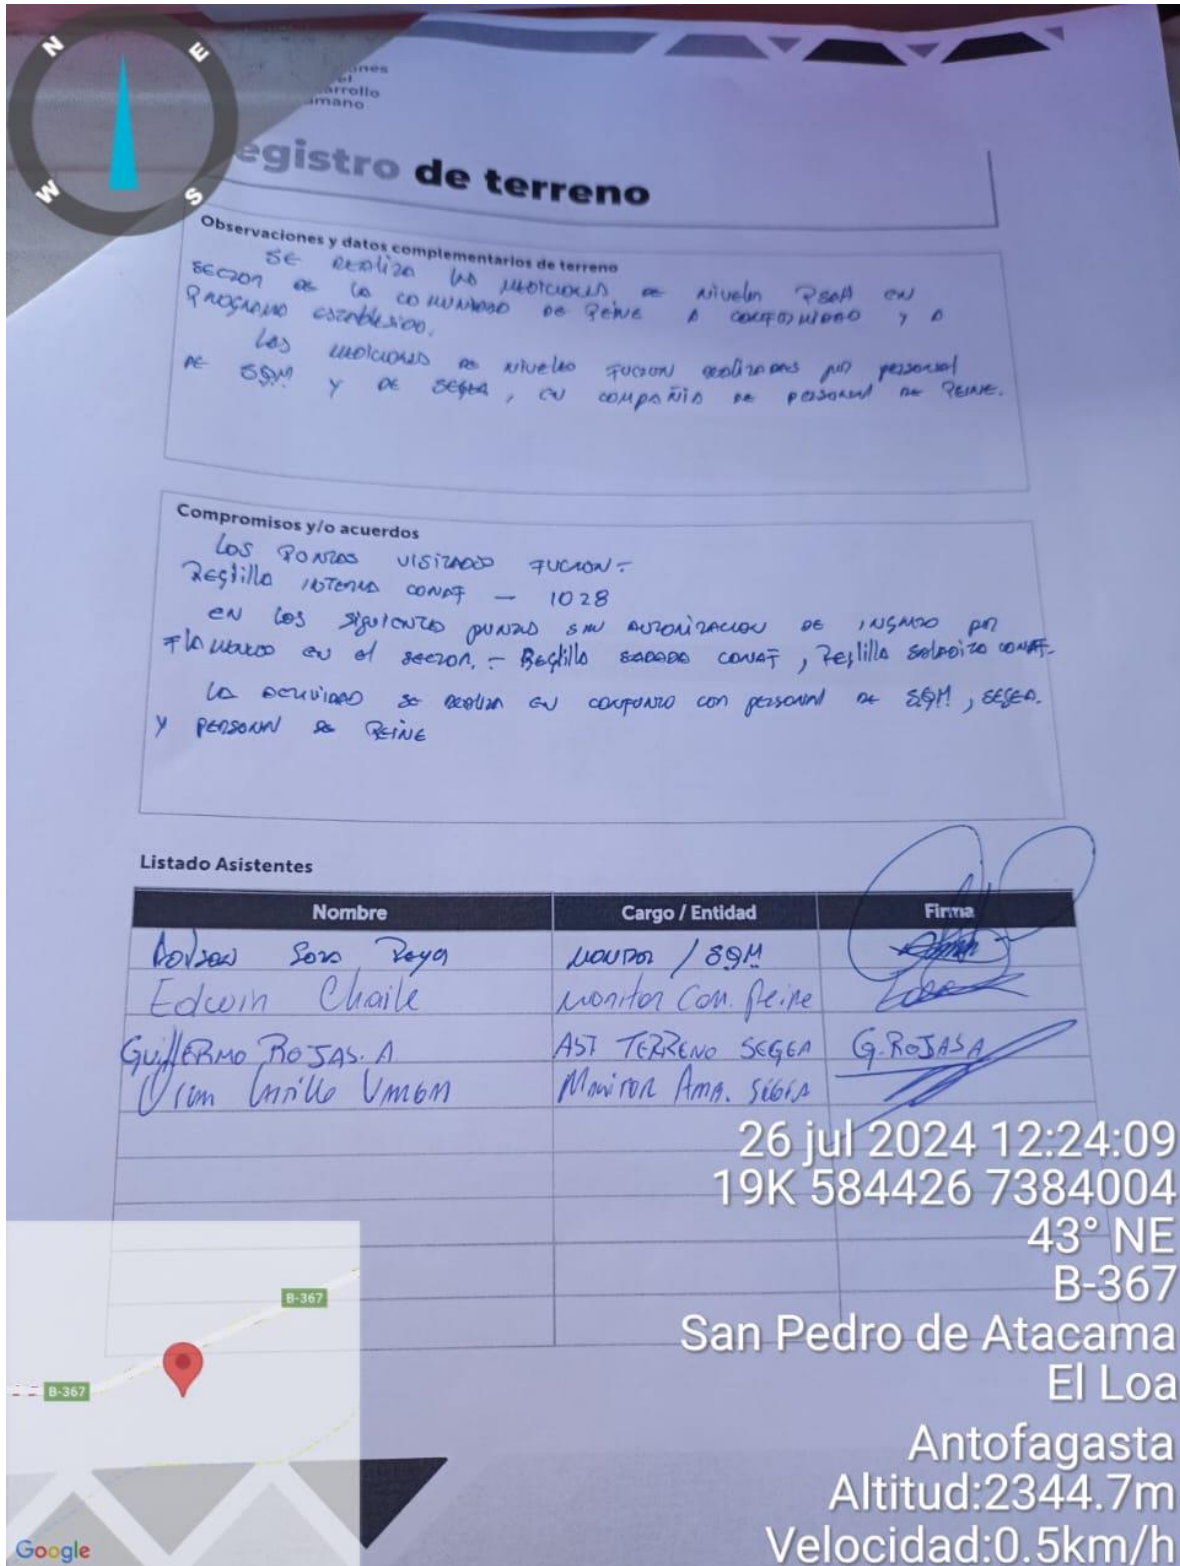 N
E
W
S
ones
el
arrollo
mano
egistro de terreno
Observaciones y datos complementarios de terreno
SE realiza las mediciones de niveles PSAH en
sector de la comunidad de Peine a conformidad y a
Programa establesido.
Las mediciones de niveles fueron realizadas por personal
de SQM y de SEGEA, en compañia de personal de Peine.
Compromisos y/o acuerdos
Los Pontos visitados fueron-
Reglilla interna conaf - 1028
en los siguientes puntos sin autorizacion de ingreso por
flamenco en el sector. - Reglilla conaf, Reglilla conaf.
La actividad se realiza en conjunto con personal de SQM, SEGEA.
y personal de Peine
Listado Asistentes
Nombre Cargo / Entidad Firma
Soto monitor / SQM
Edwin Chaile monitor Com. Peine
GuillERMO ROJAS. A AST TERRENO SEGEA G.ROJASA
Monitor Amb. SEGEA
26 jul 2024 12:24:09
19K 584426 7384004
43° NE
B-367
San Pedro de Atacama
El Loa
Antofagasta
Altitud:2344.7m
Velocidad:0.5km/h
B-367
B-367
Google